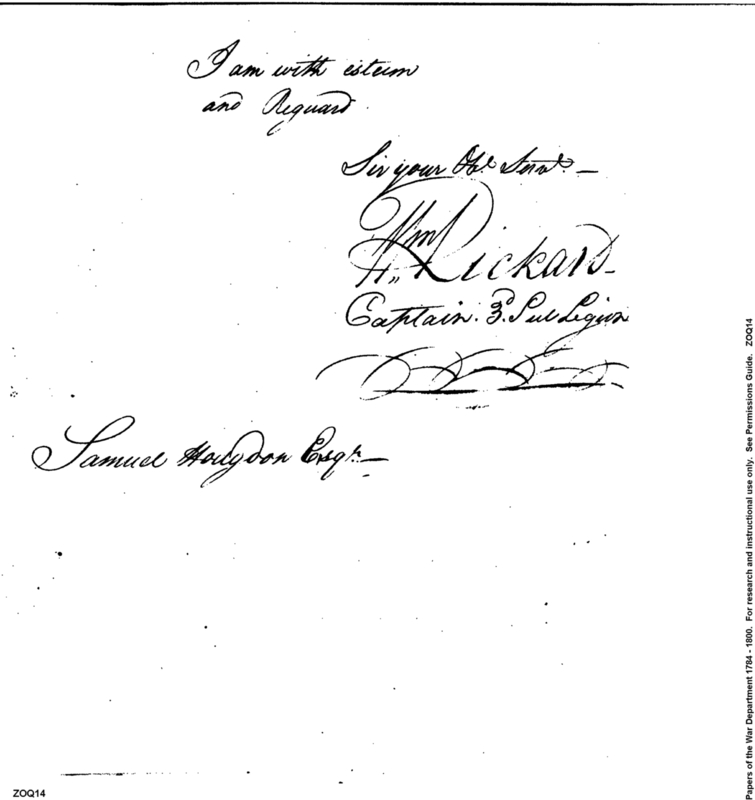 I am with esteem
and Reguard
Sir your Obt. Servt.—
Wm
H,, Rickard—
Captain. 3d. Sub Legion
Samuel Hougdon Esqr.—
Papers of the War Department 1784 - 1800. For research and instructional use only. See Permissions Guide. ZOQ14
ZOQ14